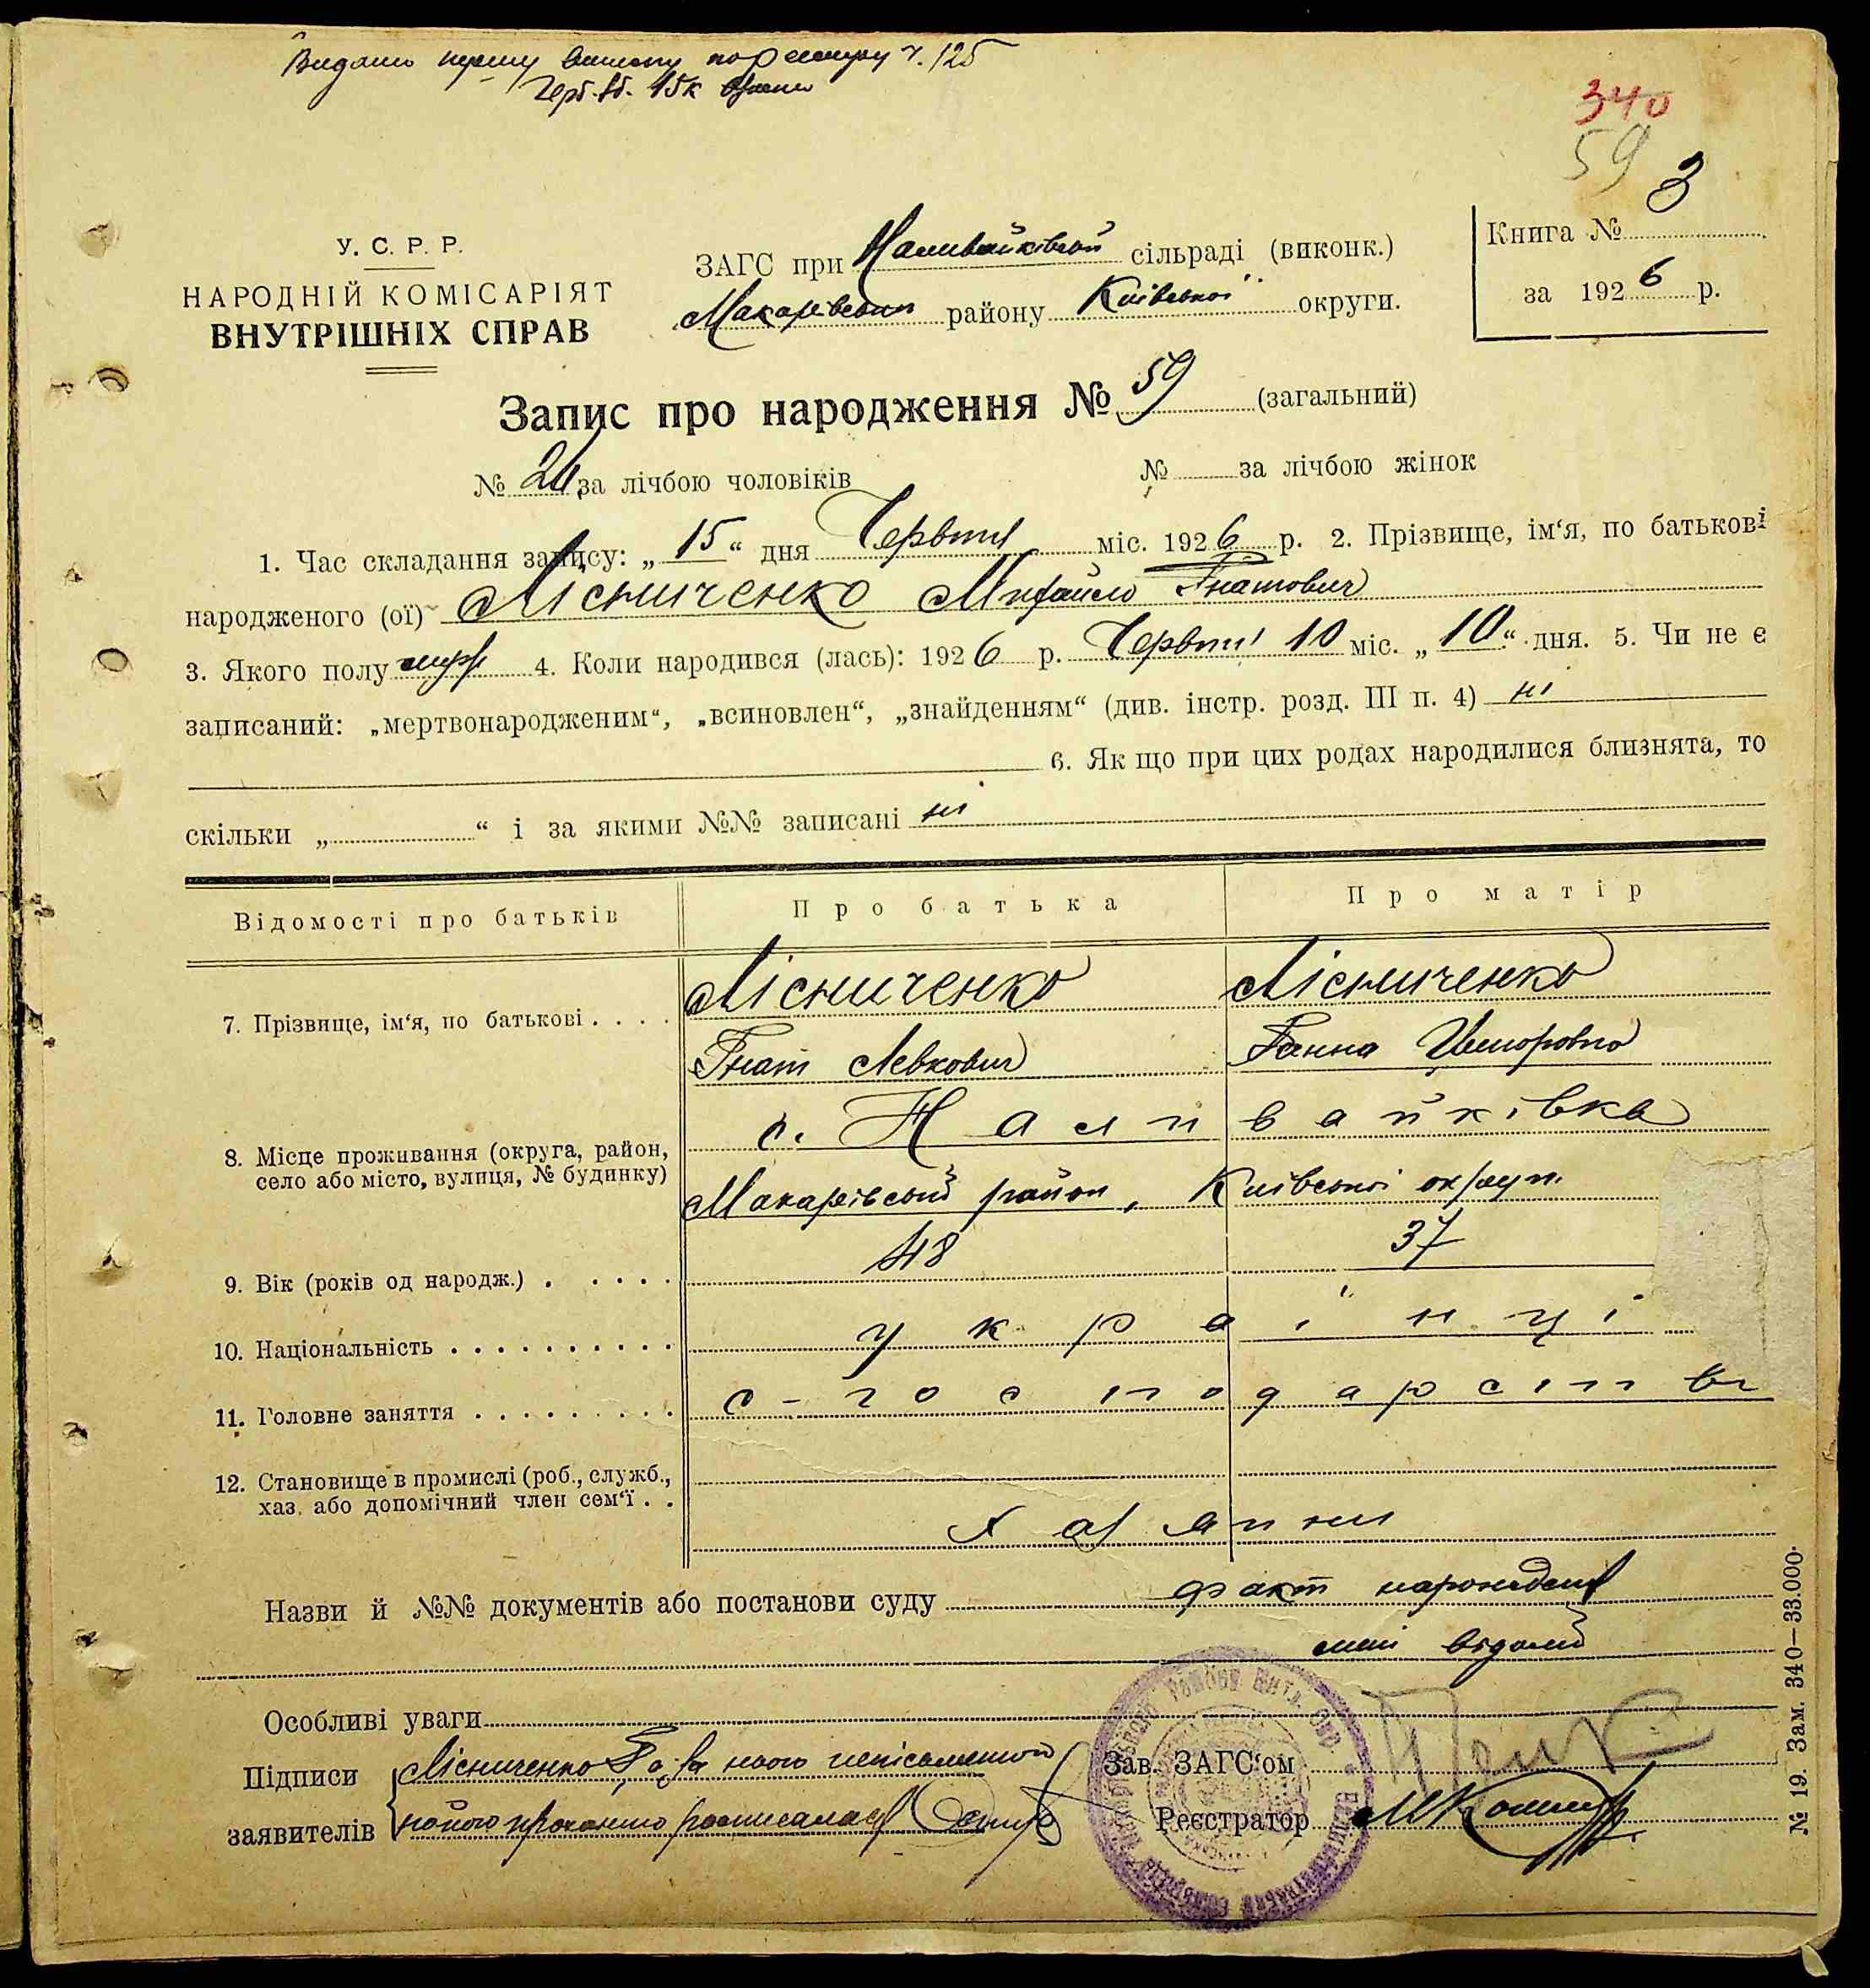 Видано першу виписку по реєстру ч. 125
Герб. зб. 15к
340
59
У. С. Р. Р.
НАРОДНІЙ КОМІСАРІЯТ
ВНУТРІШНІХ СПРАВ
ЗАГС при Наливайківській сільраді (виконк.)
Макарівського району Київської округи.
Книга № 3
за 1926 р.
Запис про народження № 59 (загальний)
№ за лічбою чоловіків № за лічбою жінок
1. Час складання запису: „15“ дня Червня міс. 1926 р. 2. Прізвище, ім‘я, по батькові
народженого (ої) Лісниченко Михайло Гнатович
3. Якого полу 4. Коли народився (лась): 1926 р. Червня 10 міс. „10“ дня. 5. Чи не є
записаний: „мертвонародженим“, „всиновлен“, „знайденням“ (див. інстр. розд. III п. 4) ні
6. Як що при цих родах народилися близнята, то
скільки „ “ і за якими №№ записані ні
Відомості про батьків Про батька Про матір
7. Прізвище, ім‘я, по батькові . . . . Лісниченко Лісниченко
Гнат Левкович Ганна
с. Наливайківка
8. Місце проживання (округа, район,
село або місто, вулиця, № будинку) Макарівський район, Київської округи.
9. Вік (років од народж.) . . . . . 48 37
10. Національність . . . . . . . . . . українці
11. Головне заняття . . . . . . . . . с-господарство
12. Становище в промислі (роб., служб.,
хаз. або допомічний член сем‘ї . .
Назви й №№ документів або постанови суду факт народження
мені відомий
Особливі уваги
Підписи Лісниченко Г а за його неписьменного
заявителів на його прохання росписалася
Зав. ЗАГС‘ом
Реєстратор
№ 19. Зам. 340—33.000.